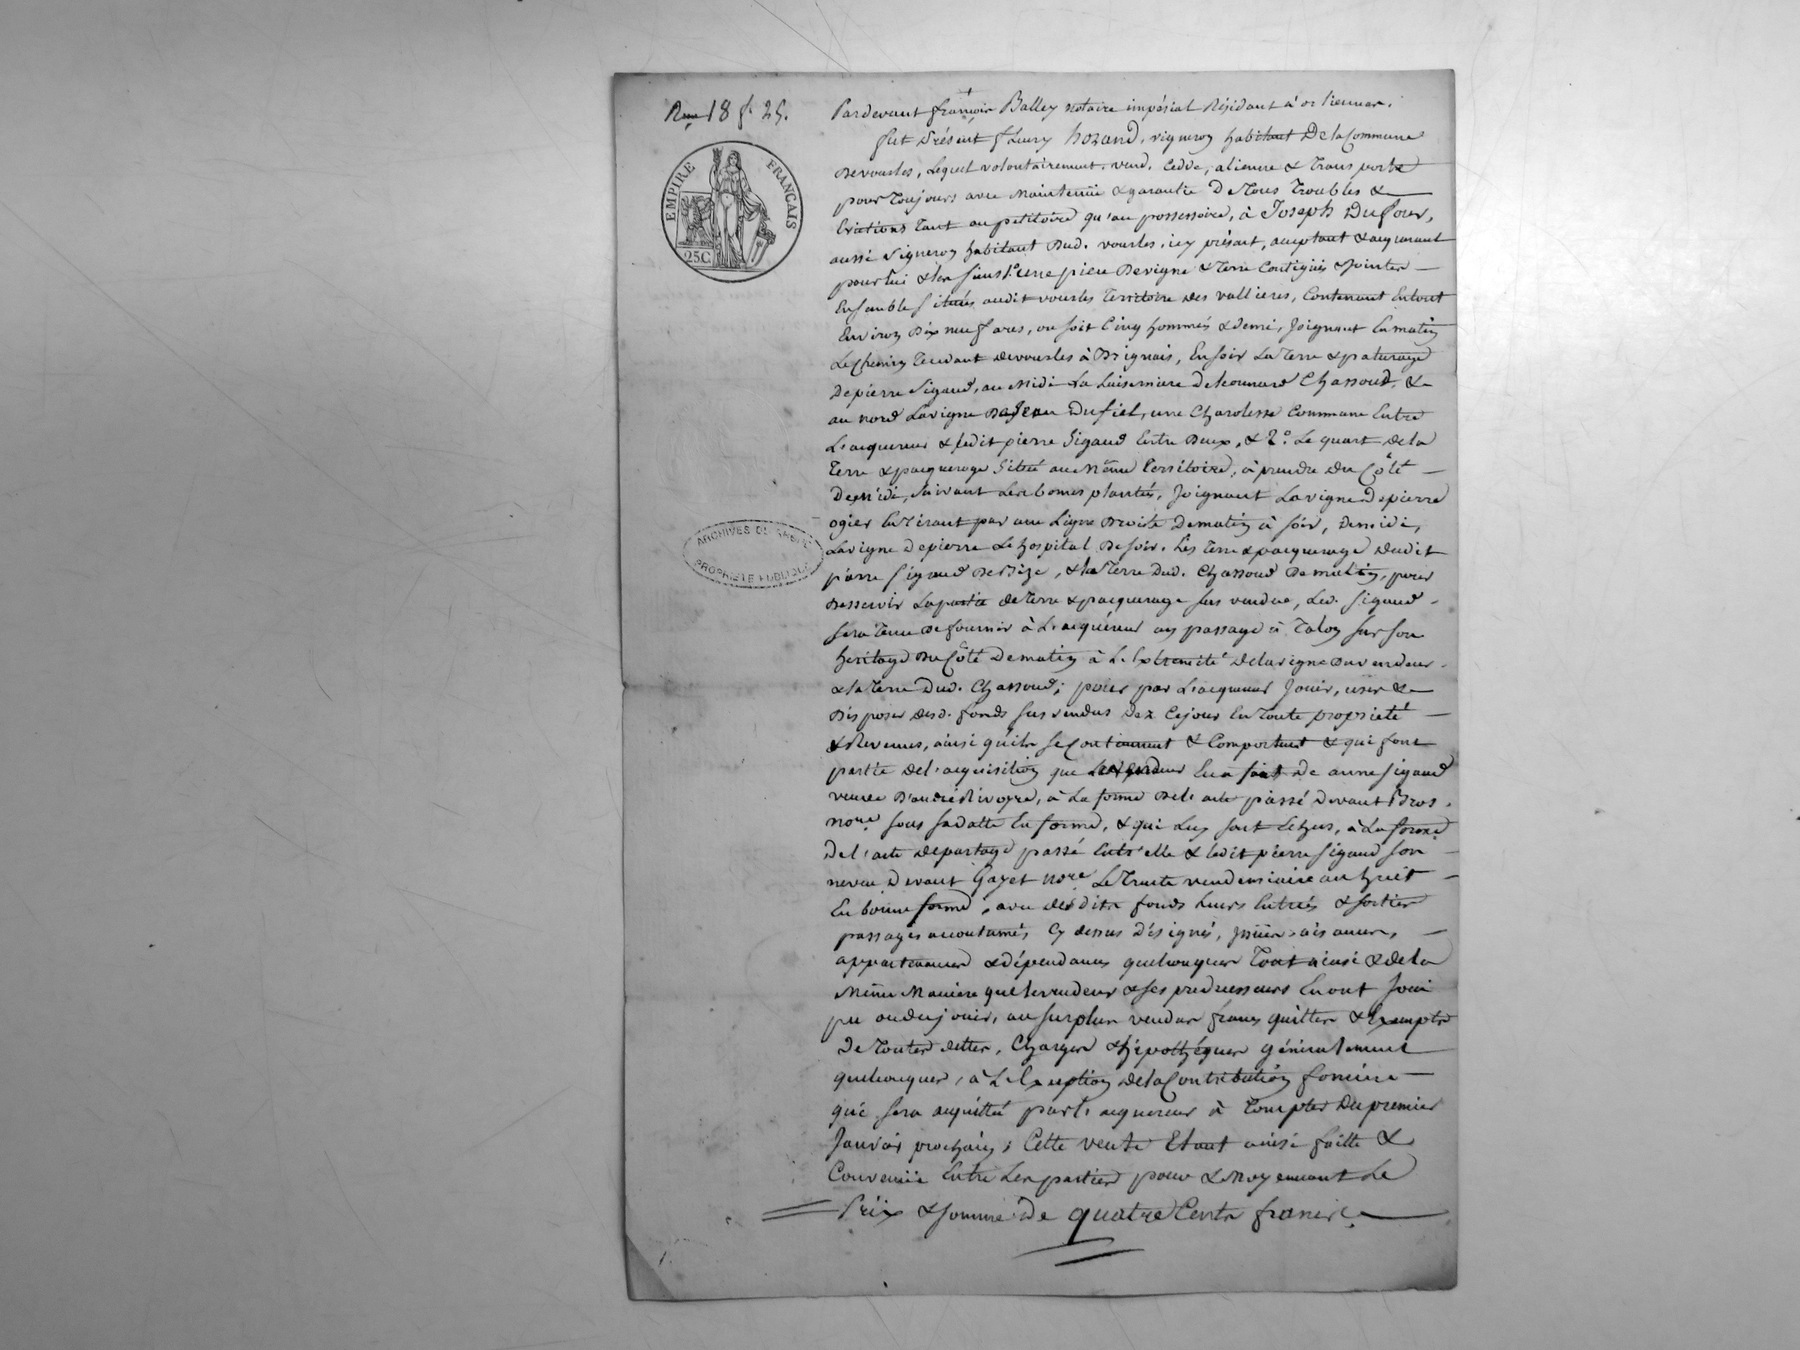 Rme 18 f. 25.
EMPIRE FRANÇAIS
25C
ARCHIVES DU RHÔNE
PROPRIÉTÉ PUBLIQUE
Pardevant françois Balley notaire impérial Résidant à orliennas.
fut Présent fleury hozand, vigneron habitant De la Commune
De vourles, Lequel volontairement, vend, Cedde, alienne & Transporte
pour Toujours avec Maintenüe & garantie De Tous Troubles &
Evictions Tant au petitoire qu'au possessoire, à Joseph Dufour,
aussi vigneron habitant Dud. vourles, icy présent, acceptant & acquerant
pour lui & les siens 1.° une piece De vigne & Terre Contigües & Jointes
Ensemble situés audit vourles Territoire des vallieres, Contenant En tout
Environ Dix neuf ares, ou soit Cinq hommés & demi, Joignant Eu matin
Le Chemin Tendant de vourles à Brignais, Eu soir La Terre & paturage
De pierre Sigaud, au Midi La Luiserniere De Leonard Chassoud, &
au nord La vigne De Jean Dufiel, une Charolesse Commune Entre
L'acquereur & ledit pierre Sigaud Entre Deux, & 2.° Le quart de la
Terre & pacquerage situé au Même Territoire, à prendre Du Côté
De Midi, suivant Les bornes plantés, Joignant La vigne De pierre
ogier En Tirant par une Ligne Droite De matin à soir, De midi,
La vigne De pierre Le hospital De soir, Les Terre & pacquerage dudit
pierre Sigaud De bize, & la Terre Dud. Chassoud De matin, pour
Desservir La partie de Terre & pacquerage sus vendue, Led. Sigaud
sera Tenu De fournir à L'acquéreur un passage à Talon sur son
heritage Du Côté De matin à L'Extremité de la vigne Du vendeur
& la Terre Dud. Chassoud; pour par L'acquereur Jouir, user &
Disposer desd. fonds sus vendus Dez Cejour En Toute propriété
& Revenus, ainsi qu'ils se Contiennent & Comportent & qui font
partie de l'acquisition que Le vendeur En a fait De anne Sigaud
veuve D'andré Rivoyre, à La forme De l'acte passé Devant Bros
no.re sous sa datte En forme, & qui Luy sont Echus, à La forme
De l'acte de partage passé Entr'elle & ledit pierre Sigaud son
neveu Devant Gayet no.re Le Trente vendemiaire an huit
En bonne forme, avec desdits fonds Leurs Entrées & sorties
passages accoutumés Cy dessus Désignés, aisances,
appartenances & dépendances quelconques Tout ainsi & de la
Même Maniere que le vendeur & ses predecesseurs En ont Joui
pu ou du jouir, au surplus vendus francs quittes & Exempts
De Toutes dettes, Charges & hipothéques généralement
quelconques, à L'Exception de la Contribution fonciere
qui sera acquittée par L'acquereur à Compter Du premier
Janvier prochain; Cette vente Etant ainsi faitte &
Convenüe Entre Les parties pour & Moyennant Le
Prix & somme De quatre Cents francs.